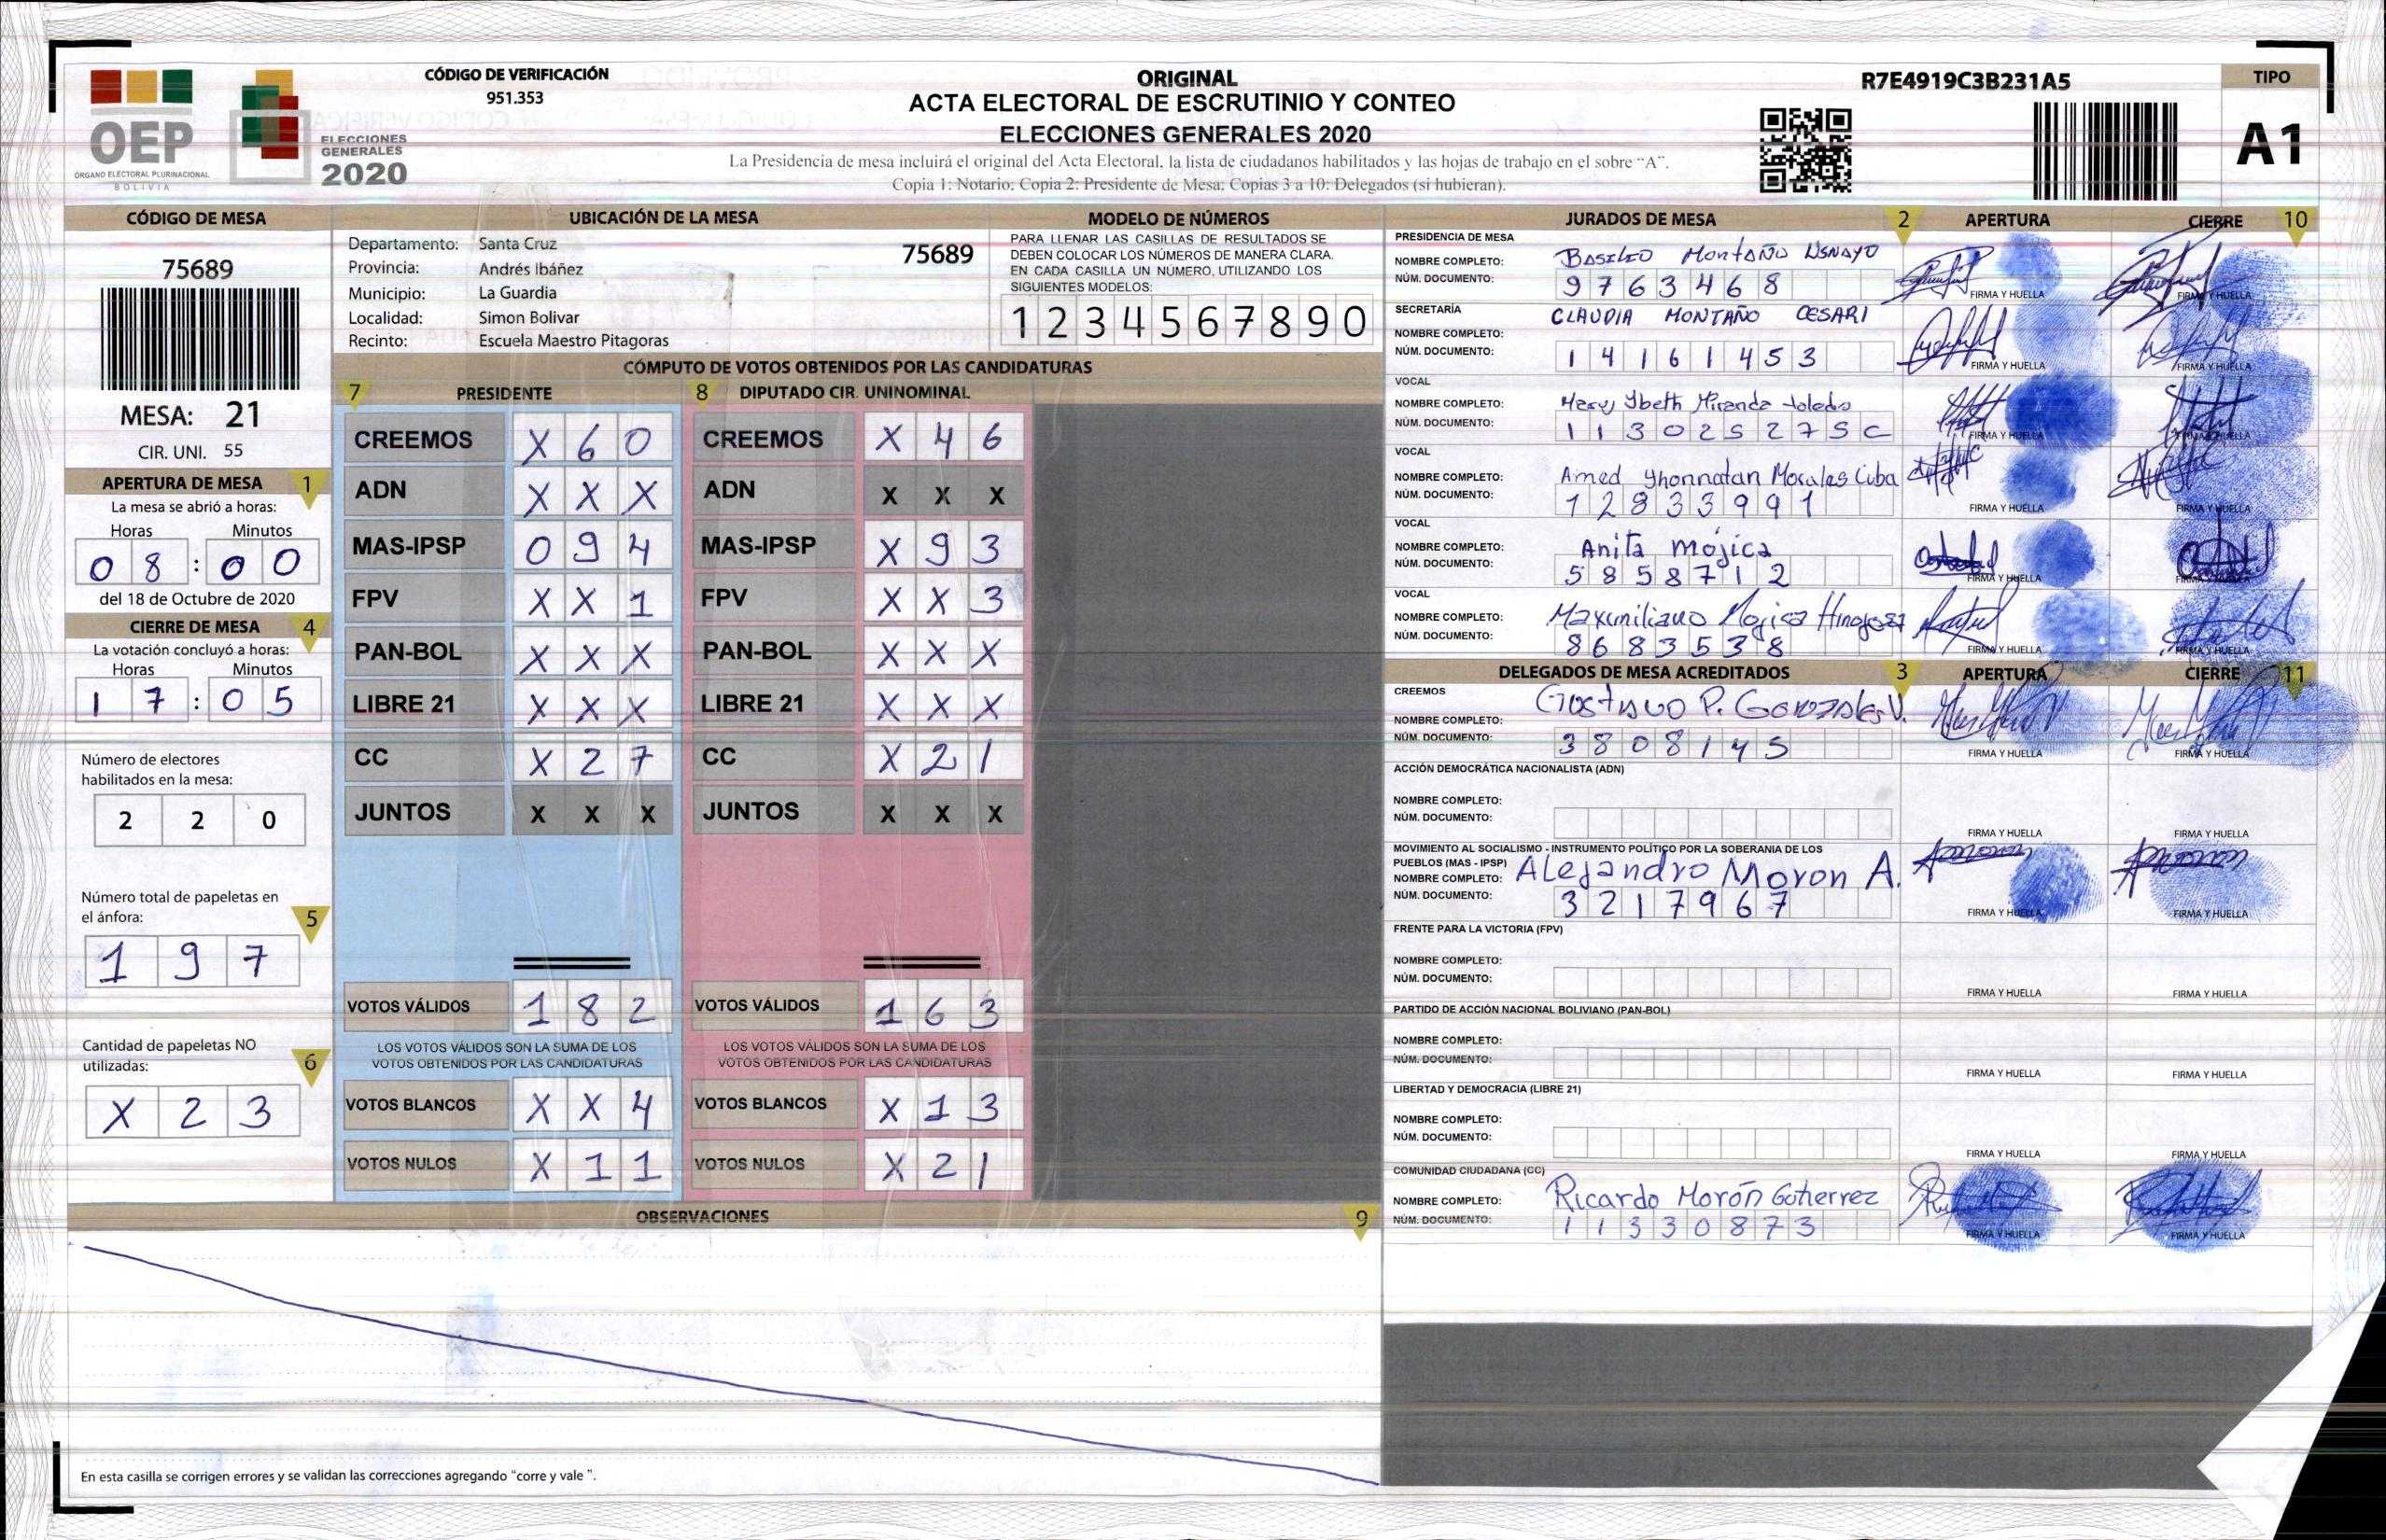 CÓDIGO DE VERIFICACIÓN
951.353
OEP
ÓRGANO ELECTORAL PLURINACIONAL
BOLIVIA
ELECCIONES
GENERALES
2020
ORIGINAL
ACTA ELECTORAL DE ESCRUTINIO Y CONTEO
ELECCIONES GENERALES 2020
La Presidencia de mesa incluirá el original del Acta Electoral, la lista de ciudadanos habilitados y las hojas de trabajo en el sobre “A”.
Copia 1: Notario; Copia 2: Presidente de Mesa; Copias 3 a 10: Delegados (si hubieran).
R7E4919C3B231A5
TIPO
A1
CÓDIGO DE MESA
75689
MESA: 21
CIR. UNI. 55
APERTURA DE MESA 1
La mesa se abrió a horas:
Horas Minutos
0 8 : 0 0
del 18 de Octubre de 2020
CIERRE DE MESA 4
La votación concluyó a horas:
Horas Minutos
1 7 : 0 5
Número de electores
habilitados en la mesa:
2 2 0
Número total de papeletas en
el ánfora: 5
1 9 7
Cantidad de papeletas NO
utilizadas: 6
X 2 3
UBICACIÓN DE LA MESA
Departamento: Santa Cruz 75689
Provincia: Andrés Ibáñez
Municipio: La Guardia
Localidad: Simon Bolivar
Recinto: Escuela Maestro Pitagoras
MODELO DE NÚMEROS
PARA LLENAR LAS CASILLAS DE RESULTADOS SE
DEBEN COLOCAR LOS NÚMEROS DE MANERA CLARA.
EN CADA CASILLA UN NÚMERO, UTILIZANDO LOS
SIGUIENTES MODELOS:
1 2 3 4 5 6 7 8 9 0
CÓMPUTO DE VOTOS OBTENIDOS POR LAS CANDIDATURAS
7 PRESIDENTE
CREEMOS X 6 0
ADN X X X
MAS-IPSP 0 9 4
FPV X X 1
PAN-BOL X X X
LIBRE 21 X X X
CC X 2 7
JUNTOS X X X
VOTOS VÁLIDOS 1 8 2
LOS VOTOS VÁLIDOS SON LA SUMA DE LOS
VOTOS OBTENIDOS POR LAS CANDIDATURAS
VOTOS BLANCOS X X 4
VOTOS NULOS X 1 1
8 DIPUTADO CIR. UNINOMINAL
CREEMOS X 4 6
ADN X X X
MAS-IPSP X 9 3
FPV X X 3
PAN-BOL X X X
LIBRE 21 X X X
CC X 2 1
JUNTOS X X X
VOTOS VÁLIDOS 1 6 3
LOS VOTOS VÁLIDOS SON LA SUMA DE LOS
VOTOS OBTENIDOS POR LAS CANDIDATURAS
VOTOS BLANCOS X 1 3
VOTOS NULOS X 2 1
OBSERVACIONES 9
En esta casilla se corrigen errores y se validan las correcciones agregando “corre y vale ”.
JURADOS DE MESA 2 APERTURA CIERRE 10
PRESIDENCIA DE MESA
NOMBRE COMPLETO: BASILIO MONTAÑO USNAYO
NÚM. DOCUMENTO: 9 7 6 3 4 6 8
FIRMA Y HUELLA FIRMA Y HUELLA
SECRETARÍA
NOMBRE COMPLETO: CLAUDIA MONTAÑO CESARI
NÚM. DOCUMENTO: 1 4 1 6 1 4 5 3
FIRMA Y HUELLA FIRMA Y HUELLA
VOCAL
NOMBRE COMPLETO: Mary Ybeth Miranda toledo
NÚM. DOCUMENTO: 1 1 3 0 2 5 2 7 S C
FIRMA Y HUELLA FIRMA Y HUELLA
VOCAL
NOMBRE COMPLETO: Amed Yhonnatan Morales Cuba
NÚM. DOCUMENTO: 1 2 8 3 3 9 9 1
FIRMA Y HUELLA FIRMA Y HUELLA
VOCAL
NOMBRE COMPLETO: Anita mojica
NÚM. DOCUMENTO: 5 8 5 8 7 1 2
FIRMA Y HUELLA FIRMA Y HUELLA
VOCAL
NOMBRE COMPLETO: Maximiliano Mojica Hinojosa
NÚM. DOCUMENTO: 8 6 8 3 5 3 8
FIRMA Y HUELLA FIRMA Y HUELLA
DELEGADOS DE MESA ACREDITADOS 3 APERTURA CIERRE 11
CREEMOS
NOMBRE COMPLETO: GUSTAVO P. GONZALES V.
NÚM. DOCUMENTO: 3 8 0 8 1 4 5
FIRMA Y HUELLA FIRMA Y HUELLA
ACCIÓN DEMOCRÁTICA NACIONALISTA (ADN)
NOMBRE COMPLETO:
NÚM. DOCUMENTO:
FIRMA Y HUELLA FIRMA Y HUELLA
MOVIMIENTO AL SOCIALISMO - INSTRUMENTO POLÍTICO POR LA SOBERANIA DE LOS
PUEBLOS (MAS - IPSP)
NOMBRE COMPLETO: Alejandro Moron A.
NÚM. DOCUMENTO: 3 2 1 7 9 6 7
FIRMA Y HUELLA FIRMA Y HUELLA
FRENTE PARA LA VICTORIA (FPV)
NOMBRE COMPLETO:
NÚM. DOCUMENTO:
FIRMA Y HUELLA FIRMA Y HUELLA
PARTIDO DE ACCIÓN NACIONAL BOLIVIANO (PAN-BOL)
NOMBRE COMPLETO:
NÚM. DOCUMENTO:
FIRMA Y HUELLA FIRMA Y HUELLA
LIBERTAD Y DEMOCRACIA (LIBRE 21)
NOMBRE COMPLETO:
NÚM. DOCUMENTO:
FIRMA Y HUELLA FIRMA Y HUELLA
COMUNIDAD CIUDADANA (CC)
NOMBRE COMPLETO: Ricardo Morón Gutierrez
NÚM. DOCUMENTO: 1 1 3 3 0 8 7 3
FIRMA Y HUELLA FIRMA Y HUELLA